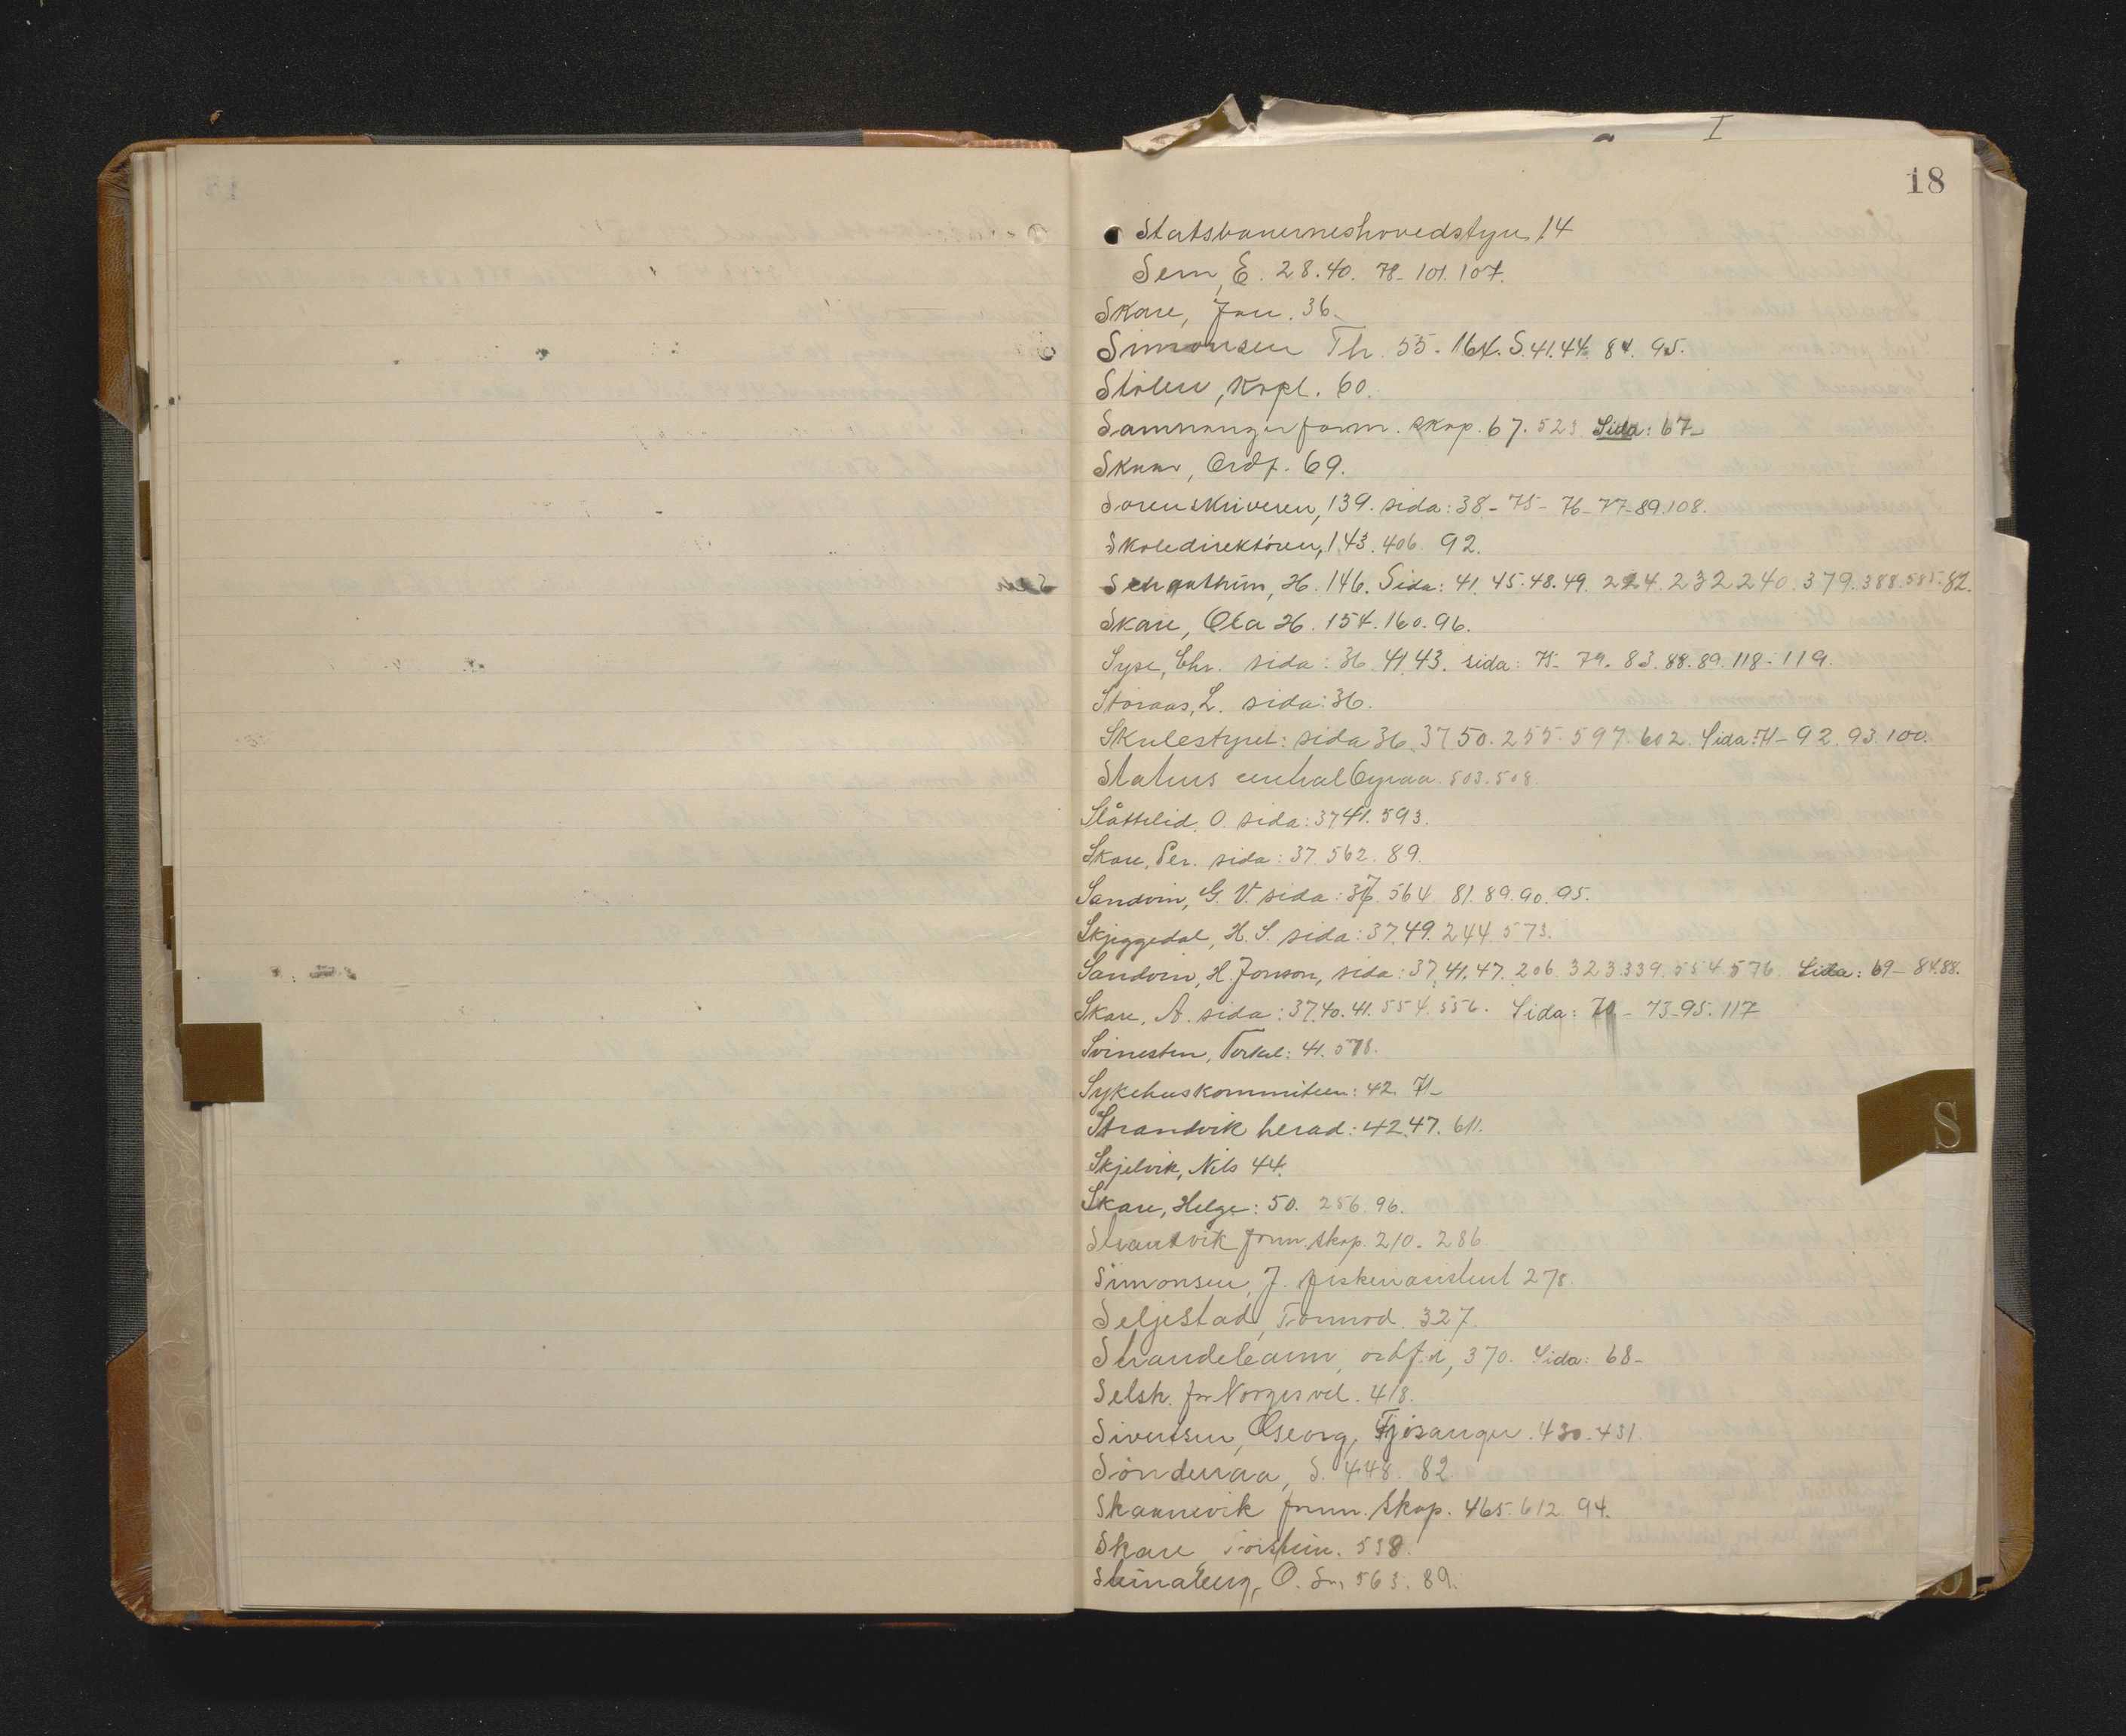 I
18
Statsbanerneshovedstyre, 14
Sem, E. 28. 40. 78- 101. 107.
Skare, Jon. 36-
Simonsen Th. 55. 164. S. 41.44. 84. 95.
Stölen, Kapt. 60.
Samnanger form. skap. 67. 523 Sida: 67-
Skaar, Ordf. 69.
Sorenskriveren, 139. sida: 38- 75- 76- 77-89.108.
Skoledirektören, 143. 406. 92.
H. 146. Sida: 41. 45. 48. 49. 224. 232 240. 379. 388. 585. 82.
Skare, Ola H. 154. 160. 96.
Syse, Chr. sida: 36. 41. 43. sida: 75- 79. 83. 88. 89. 118- 119.
Storaas, L. sida: 36.
Skulestyret: sida 36. 37 50. 255. 597. 602. Sida: 71- 92. 93. 100.
Statens centralbyraa. 503. 508.
Slåttelid, O. sida: 37 41. 593.
Skare, Per. sida: 37. 562. 89.
Sandvin, G. V. sida: 37. 564 81. 89. 90. 95.
Skjeggedal, H. S. sida: 37. 49. 244 573.
Sandvin, H. Jonson, sida: 37. 41. 47. 206. 323 339. 554. 576. Sida: 69- 84. 88.
Skare, A. sida: 37. 40. 41. 554. 556. Sida: 70- 73-95. 117
Svinesten, Torkel: 41. 578.
Sykehuskommiteen: 42. 71-
Strandvik herad: 42. 47. 611.
S
Skjelvik, Nils 44.
Skare, Helge: 50. 256. 96.
Strandvik form. skap. 210. 286
Simonsen, J. fiskeriasistent 278.
Seljestad, Tormod. 327.
Strandebarm, ordf.i, 370. Sida: 68-
Selsk. for Norges vel. 418.
Sivertsen, Georg, Fjösanger. 430-431
Sönderaa, S. 448. 82
Skaanevik form. skap. 465. 612. 94.
Skare Torstein. 538.
Steinaberg, O. 563. 89.